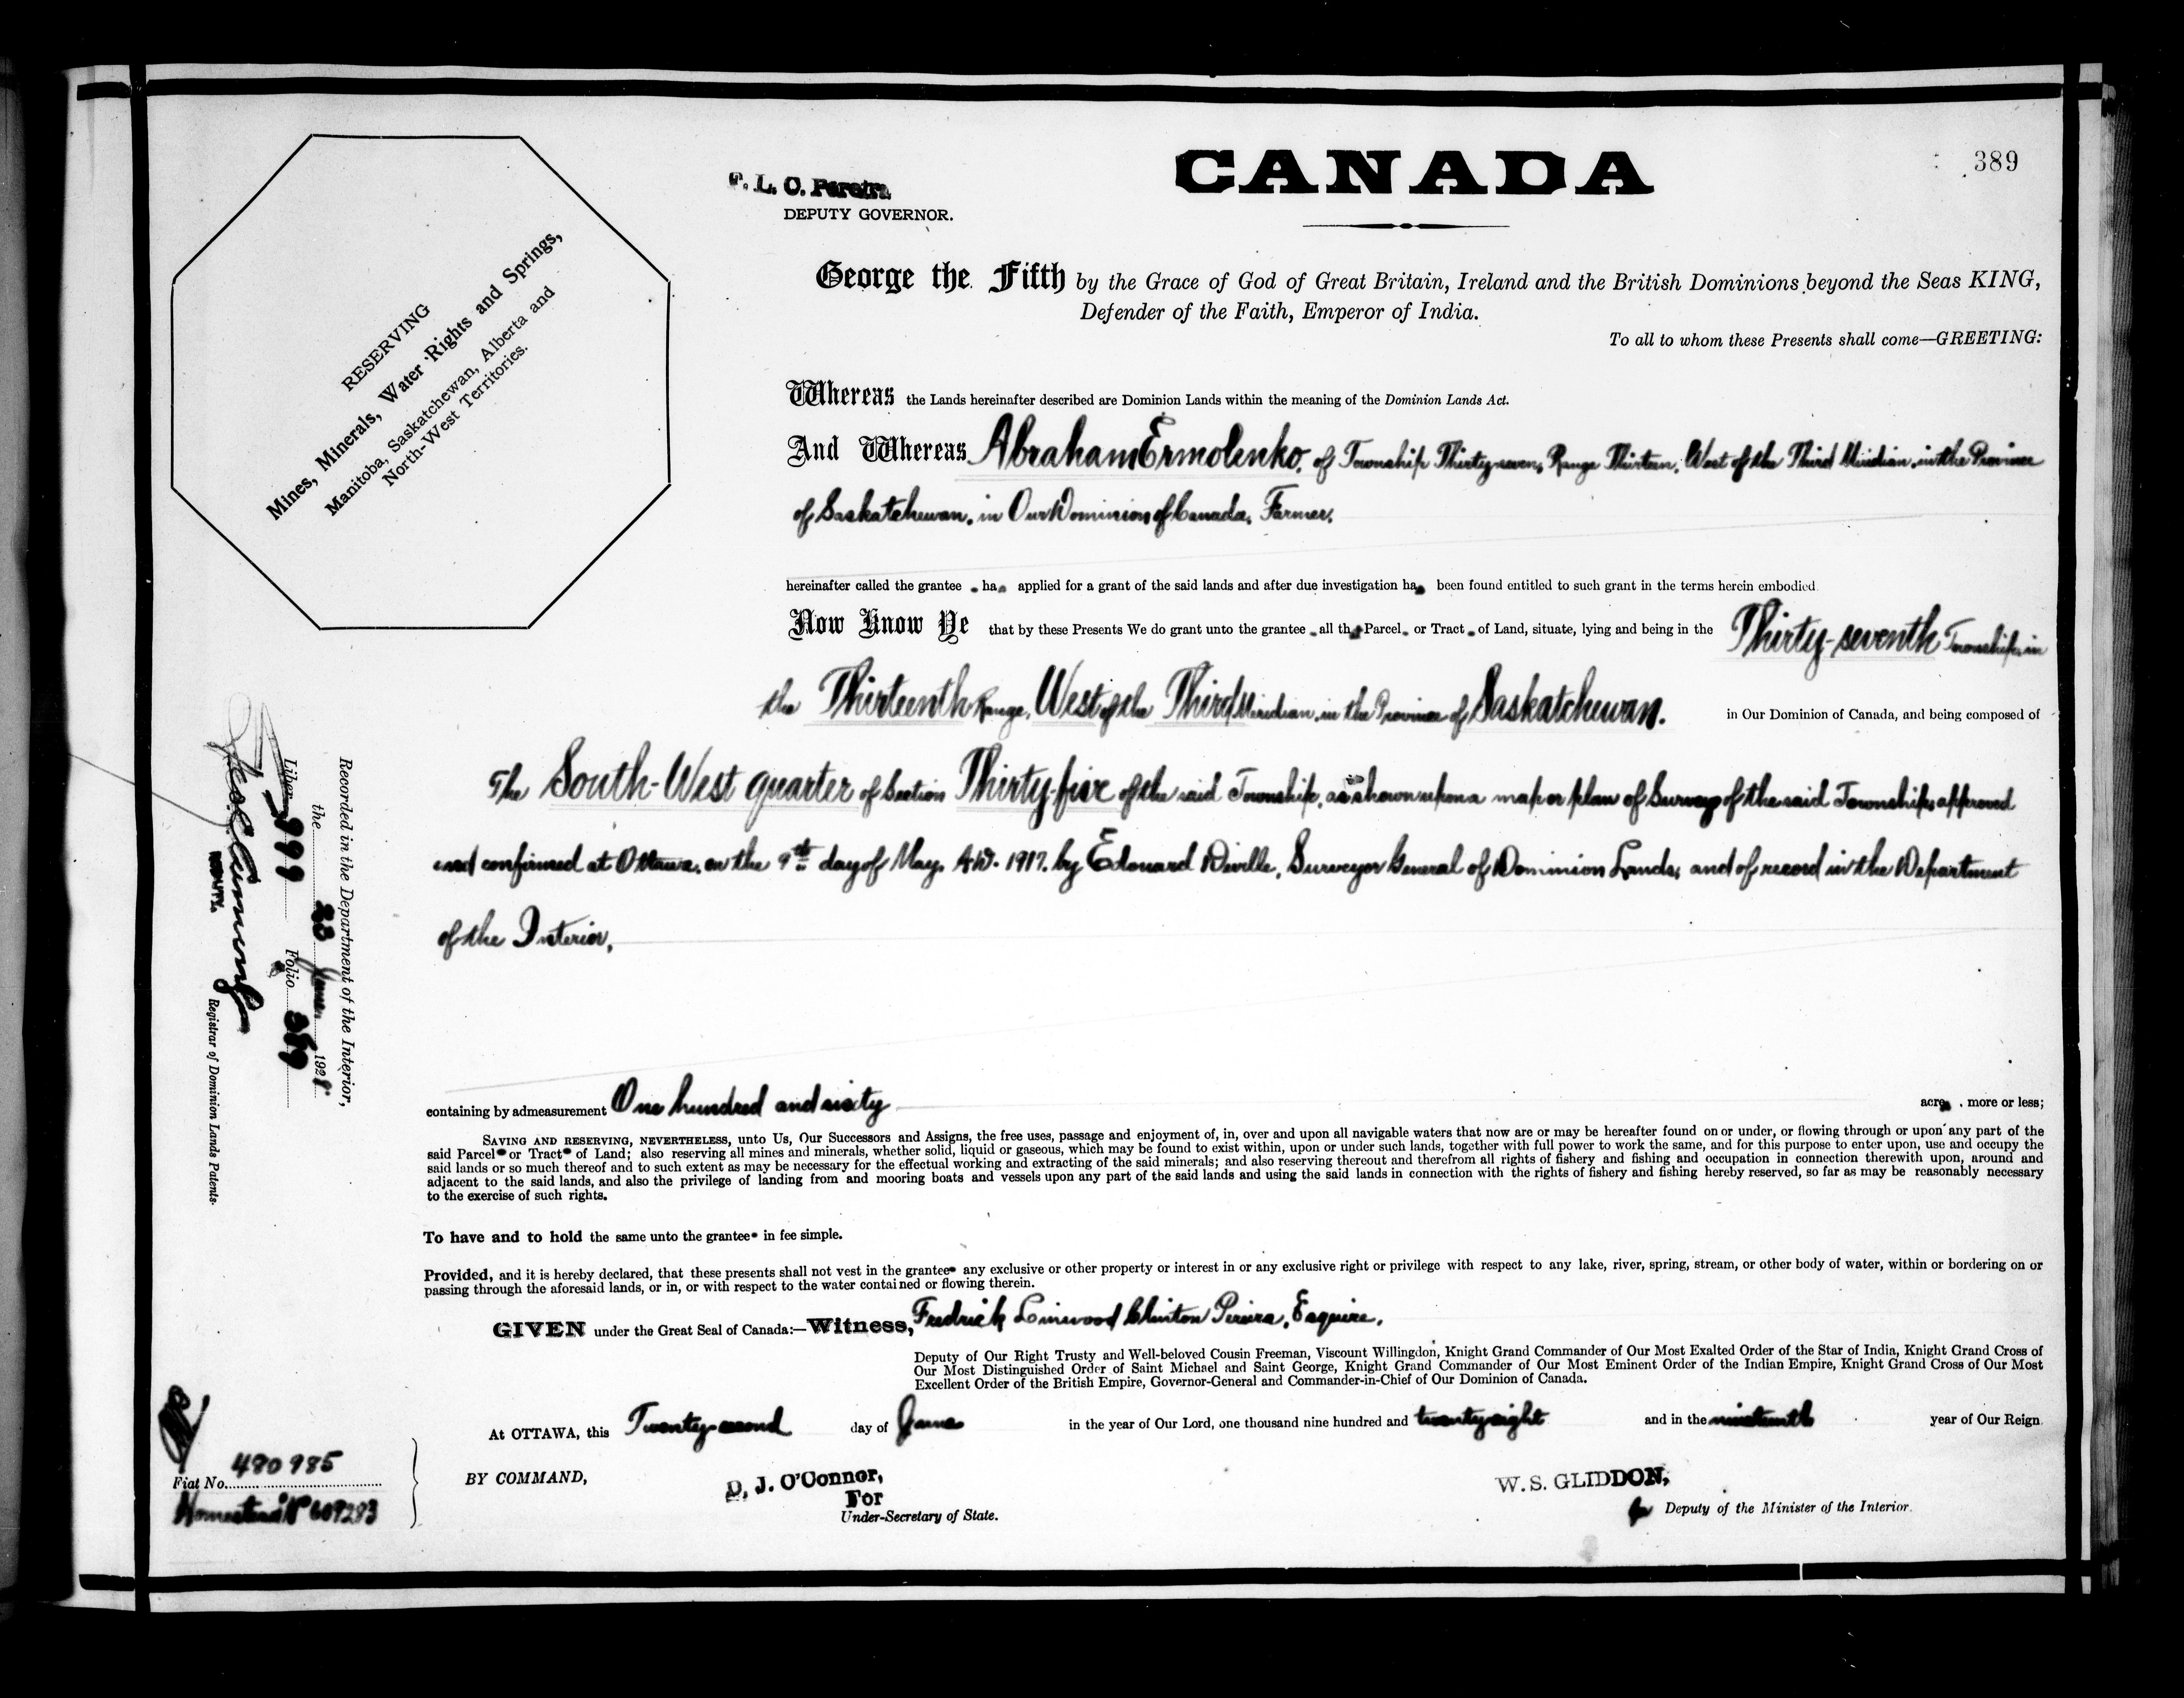 389
CANADA
F. L. C. Pereira
DEPUTY GOVERNOR.
RESERVING
Mines, Minerals, Water Rights and Springs,
Manitoba, Saskatchewan, Alberta and
North-West Territories.
George the Fifth by the Grace of God of Great Britain, Ireland and the British Dominions beyond the Seas KING,
Defender of the Faith, Emperor of India.
To all to whom these Presents shall come—GREETING:
Whereas the Lands hereinafter described are Dominion Lands within the meaning of the Dominion Lands Act.
And Whereas Abraham Ermolenko, of Township Thirty-seven, Range Thirteen, West of the Third Meridian, in the Province
of Saskatchewan, in Our Dominion of Canada, Farmer,
hereinafter called the grantee has applied for a grant of the said lands and after due investigation has been found entitled to such grant in the terms herein embodied.
Now Know Ye that by these Presents We do grant unto the grantee all that Parcel or Tract of Land, situate, lying and being in the Thirty-seventh Township, in
the Thirteenth Range, West of the Third Meridian, in the Province of Saskatchewan. in Our Dominion of Canada, and being composed of
The South-West quarter of Section Thirty-five of the said Township, as shown upon a map or plan of Survey of the said Township, approved
and confirmed at Ottawa, on the 9th day of May, A.D. 1917, by Edouard Deville, Surveyor General of Dominion Lands, and of record in the Department
of the Interior.
containing by admeasurement One hundred and sixty acres, more or less;
SAVING AND RESERVING, NEVERTHELESS, unto Us, Our Successors and Assigns, the free uses, passage and enjoyment of, in, over and upon all navigable waters that now are or may be hereafter found on or under, or flowing through or upon any part of the
said Parcel or Tract of Land; also reserving all mines and minerals, whether solid, liquid or gaseous, which may be found to exist within, upon or under such lands, together with full power to work the same, and for this purpose to enter upon, use and occupy the
said lands or so much thereof and to such extent as may be necessary for the effectual working and extracting of the said minerals; and also reserving thereout and therefrom all rights of fishery and fishing and occupation in connection therewith upon, around and
adjacent to the said lands, and also the privilege of landing from and mooring boats and vessels upon any part of the said lands and using the said lands in connection with the rights of fishery and fishing hereby reserved, so far as may be reasonably necessary
to the exercise of such rights.
To have and to hold the same unto the grantee in fee simple.
Provided, and it is hereby declared, that these presents shall not vest in the grantee any exclusive or other property or interest in or any exclusive right or privilege with respect to any lake, river, spring, stream, or other body of water, within or bordering on or
passing through the aforesaid lands, or in, or with respect to the water contained or flowing therein.
GIVEN under the Great Seal of Canada:—Witness, Fredrick Linwood Clinton Pereira, Esquire,
Deputy of Our Right Trusty and Well-beloved Cousin Freeman, Viscount Willingdon, Knight Grand Commander of Our Most Exalted Order of the Star of India, Knight Grand Cross of
Our Most Distinguished Order of Saint Michael and Saint George, Knight Grand Commander of Our Most Eminent Order of the Indian Empire, Knight Grand Cross of Our Most
Excellent Order of the British Empire, Governor-General and Commander-in-Chief of Our Dominion of Canada.
At OTTAWA, this Twenty-second day of June in the year of Our Lord, one thousand nine hundred and twenty-eight and in the nineteenth year of Our Reign.
BY COMMAND,
D. J. O'Connor,
For
Under-Secretary of State.
W. S. GLIDDON,
for Deputy of the Minister of the Interior.
Fiat No. 480985
Homestead No 609283
Recorded in the Department of the Interior,
the 23 June 1928
Liber 999 Folio 389
DEPUTY. Registrar of Dominion Lands Patents.